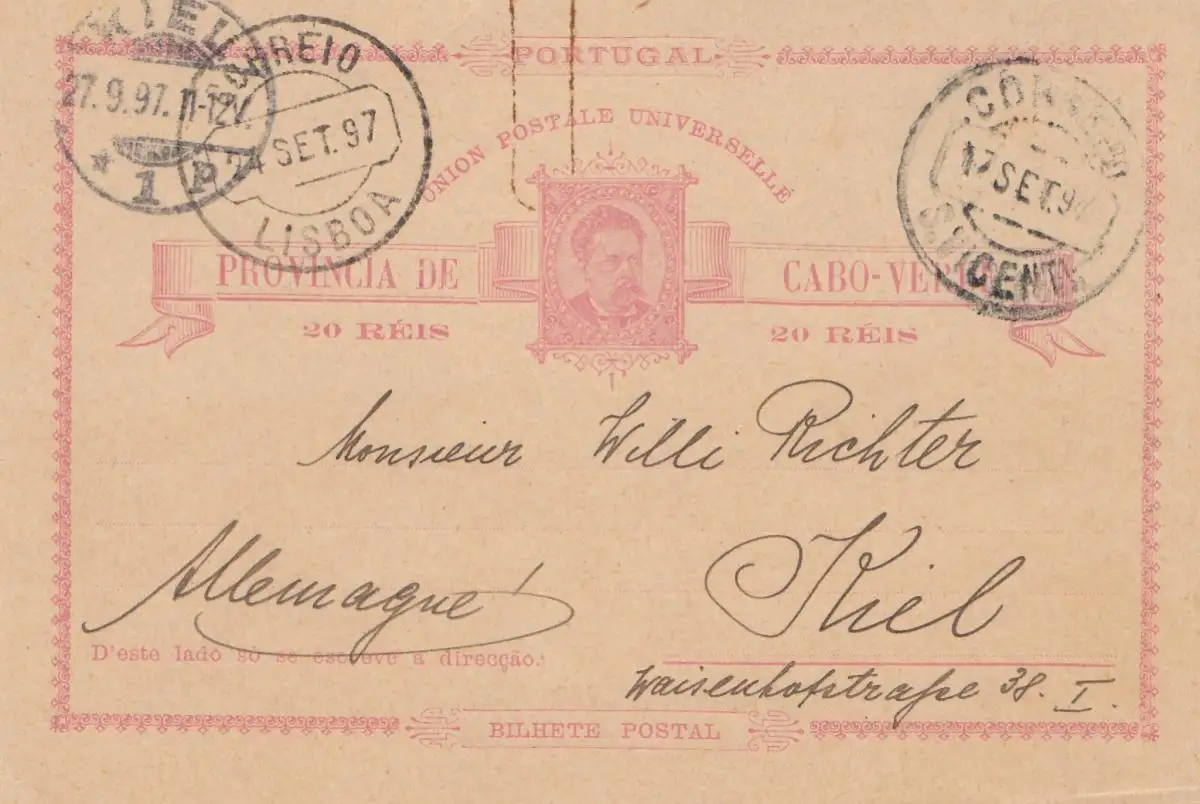 PORTUGAL
UNION POSTALE UNIVERSELLE
KIEL
27.9.97. 11-12V.
* 1
CORREIO
24 SET. 97
LISBOA
CORREIO
17 SET. 97
S. VICENTE
PROVINCIA DE CABO-VERDE
20 RÉIS 20 RÉIS
Monsieur Willi Richter
Kiel
Allemagne!
D'este lado só se escreve a direcção.
Waisenhofstraße 38. I.
BILHETE POSTAL